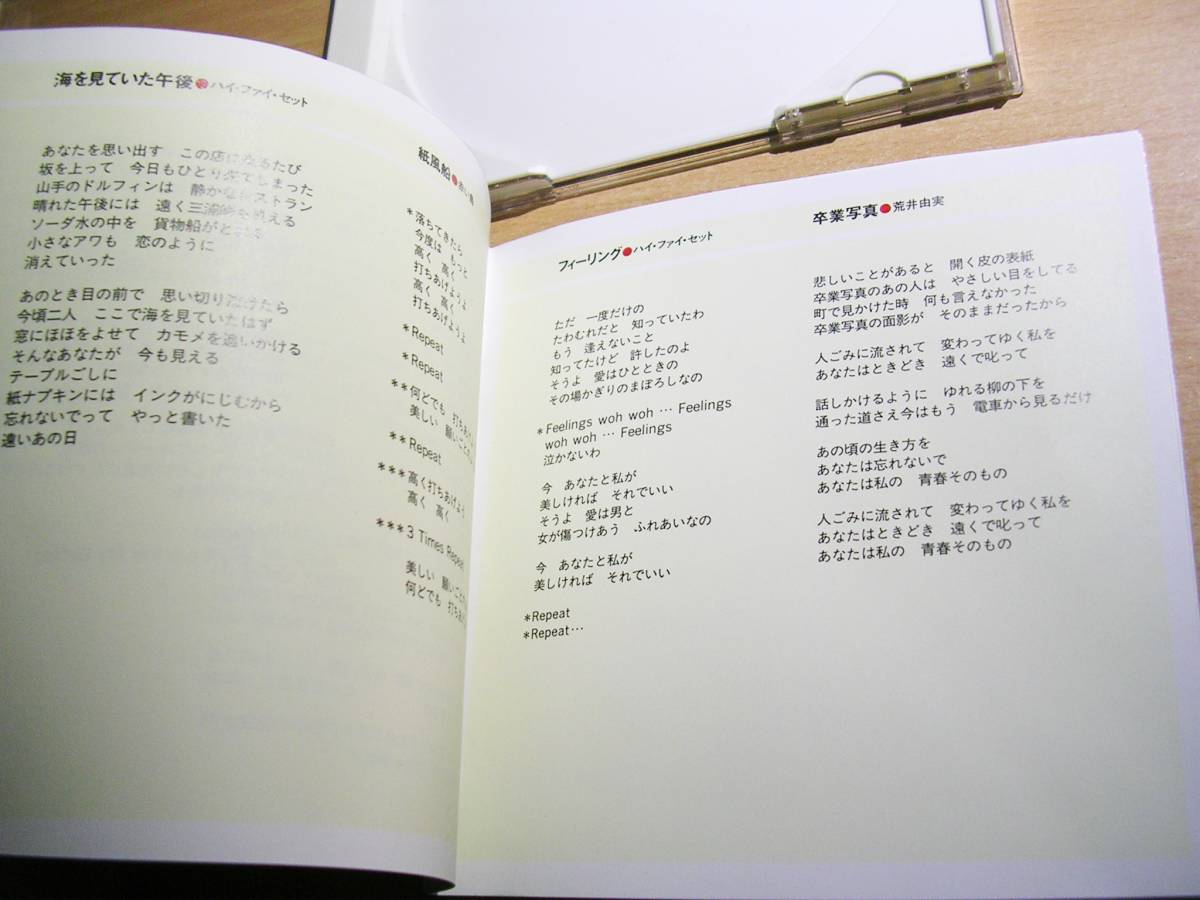 海を見ていた午後●ハイ・ファイ・セット
あなたを思い出す この店に るたび
坂を上って 今日もひとり てしまった
山手のドルフィンは 静かな ストラン
晴れた午後には 遠く三浦岬も える
ソーダ水の中を 貨物船が
小さなアワも 恋のように
消えていった
あのとき目の前で 思い切り けたら
今頃二人 ここで海を見ていたはず
窓にほほをよせて カモメを追いかける
そんなあなたが 今も見える
テーブルごしに
紙ナプキンには インクがにじむから
忘れないでって やっと書いた
遠いあの日
紙風船●赤い鳥
*落ちてきたら
今度は もっと
高く 高く
打ちあげようよ
高く 高く
打ちあげようよ
*Repeat
*Repeat
**何どでも 打ちあげ
美しい 願いごとの
**Repeat
***高く打ちあげよう
高く 高く
***3 Times Repeat
美しい 願いごとの
何どでも 打ちあ
フィーリング●ハイ・ファイ・セット
ただ 一度だけの
たわむれだと 知っていたわ
もう 逢えないこと
知ってたけど 許したのよ
そうよ 愛はひとときの
その場かぎりのまぼろしなの
*Feelings woh woh … Feelings
woh woh … Feelings
泣かないわ
今 あなたと私が
美しければ それでいい
そうよ 愛は男と
女が傷つけあう ふれあいなの
今 あなたと私が
美しければ それでいい
*Repeat
*Repeat…
卒業写真●荒井由実
悲しいことがあると 開く皮の表紙
卒業写真のあの人は やさしい目をしてる
町で見かけた時 何も言えなかった
卒業写真の面影が そのままだったから
人ごみに流されて 変わってゆく私を
あなたはときどき 遠くで叱って
話しかけるように ゆれる柳の下を
通った道さえ今はもう 電車から見るだけ
あの頃の生き方を
あなたは忘れないで
あなたは私の 青春そのもの
人ごみに流されて 変わってゆく私を
あなたはときどき 遠くで叱って
あなたは私の 青春そのもの